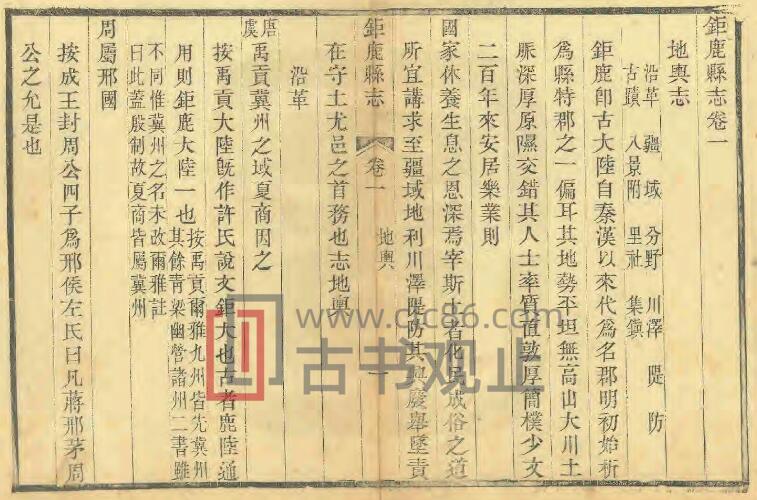 鉅鹿縣志卷一
地輿志
沿革 疆域 分野 川澤 隄防
古蹟 八景附 里社 集鎮
鉅鹿卽古大陸自秦漢以來代爲名郡明初始析
爲縣特郡之一偏耳其地勢平坦無高山大川土
脈深厚原隰交錯其人士率質直敦厚簡樸少文
二百年來安居樂業則
國家休養生息之恩深焉宰斯土者化民成俗之道
所宜講求至疆域地利川澤隄防其興廢舉墜責
鉅鹿縣志 卷一 地輿 一
在守土尤邑之首務也志地輿
沿革
唐虞 禹貢冀州之域夏商因之
按禹貢大陸旣作許氏說文鉅大也古者鹿陸通
用則鉅鹿大陸一也 按禹貢爾雅九州皆先冀州
其餘青梁幽營諸州二書雖
不同惟冀州之名未改爾雅註
曰此蓋殷制故夏商皆屬冀州
周屬邢國
按成王封周公四子爲邢侯左氏曰凡蔣邢茅周
公之允是也
www.gjc86.com
古书观止